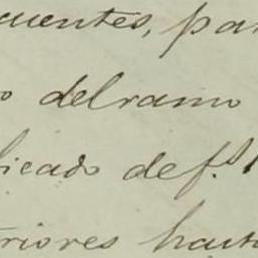 cuentes, par
o del ramo
licado de f.s 1
riores hasta